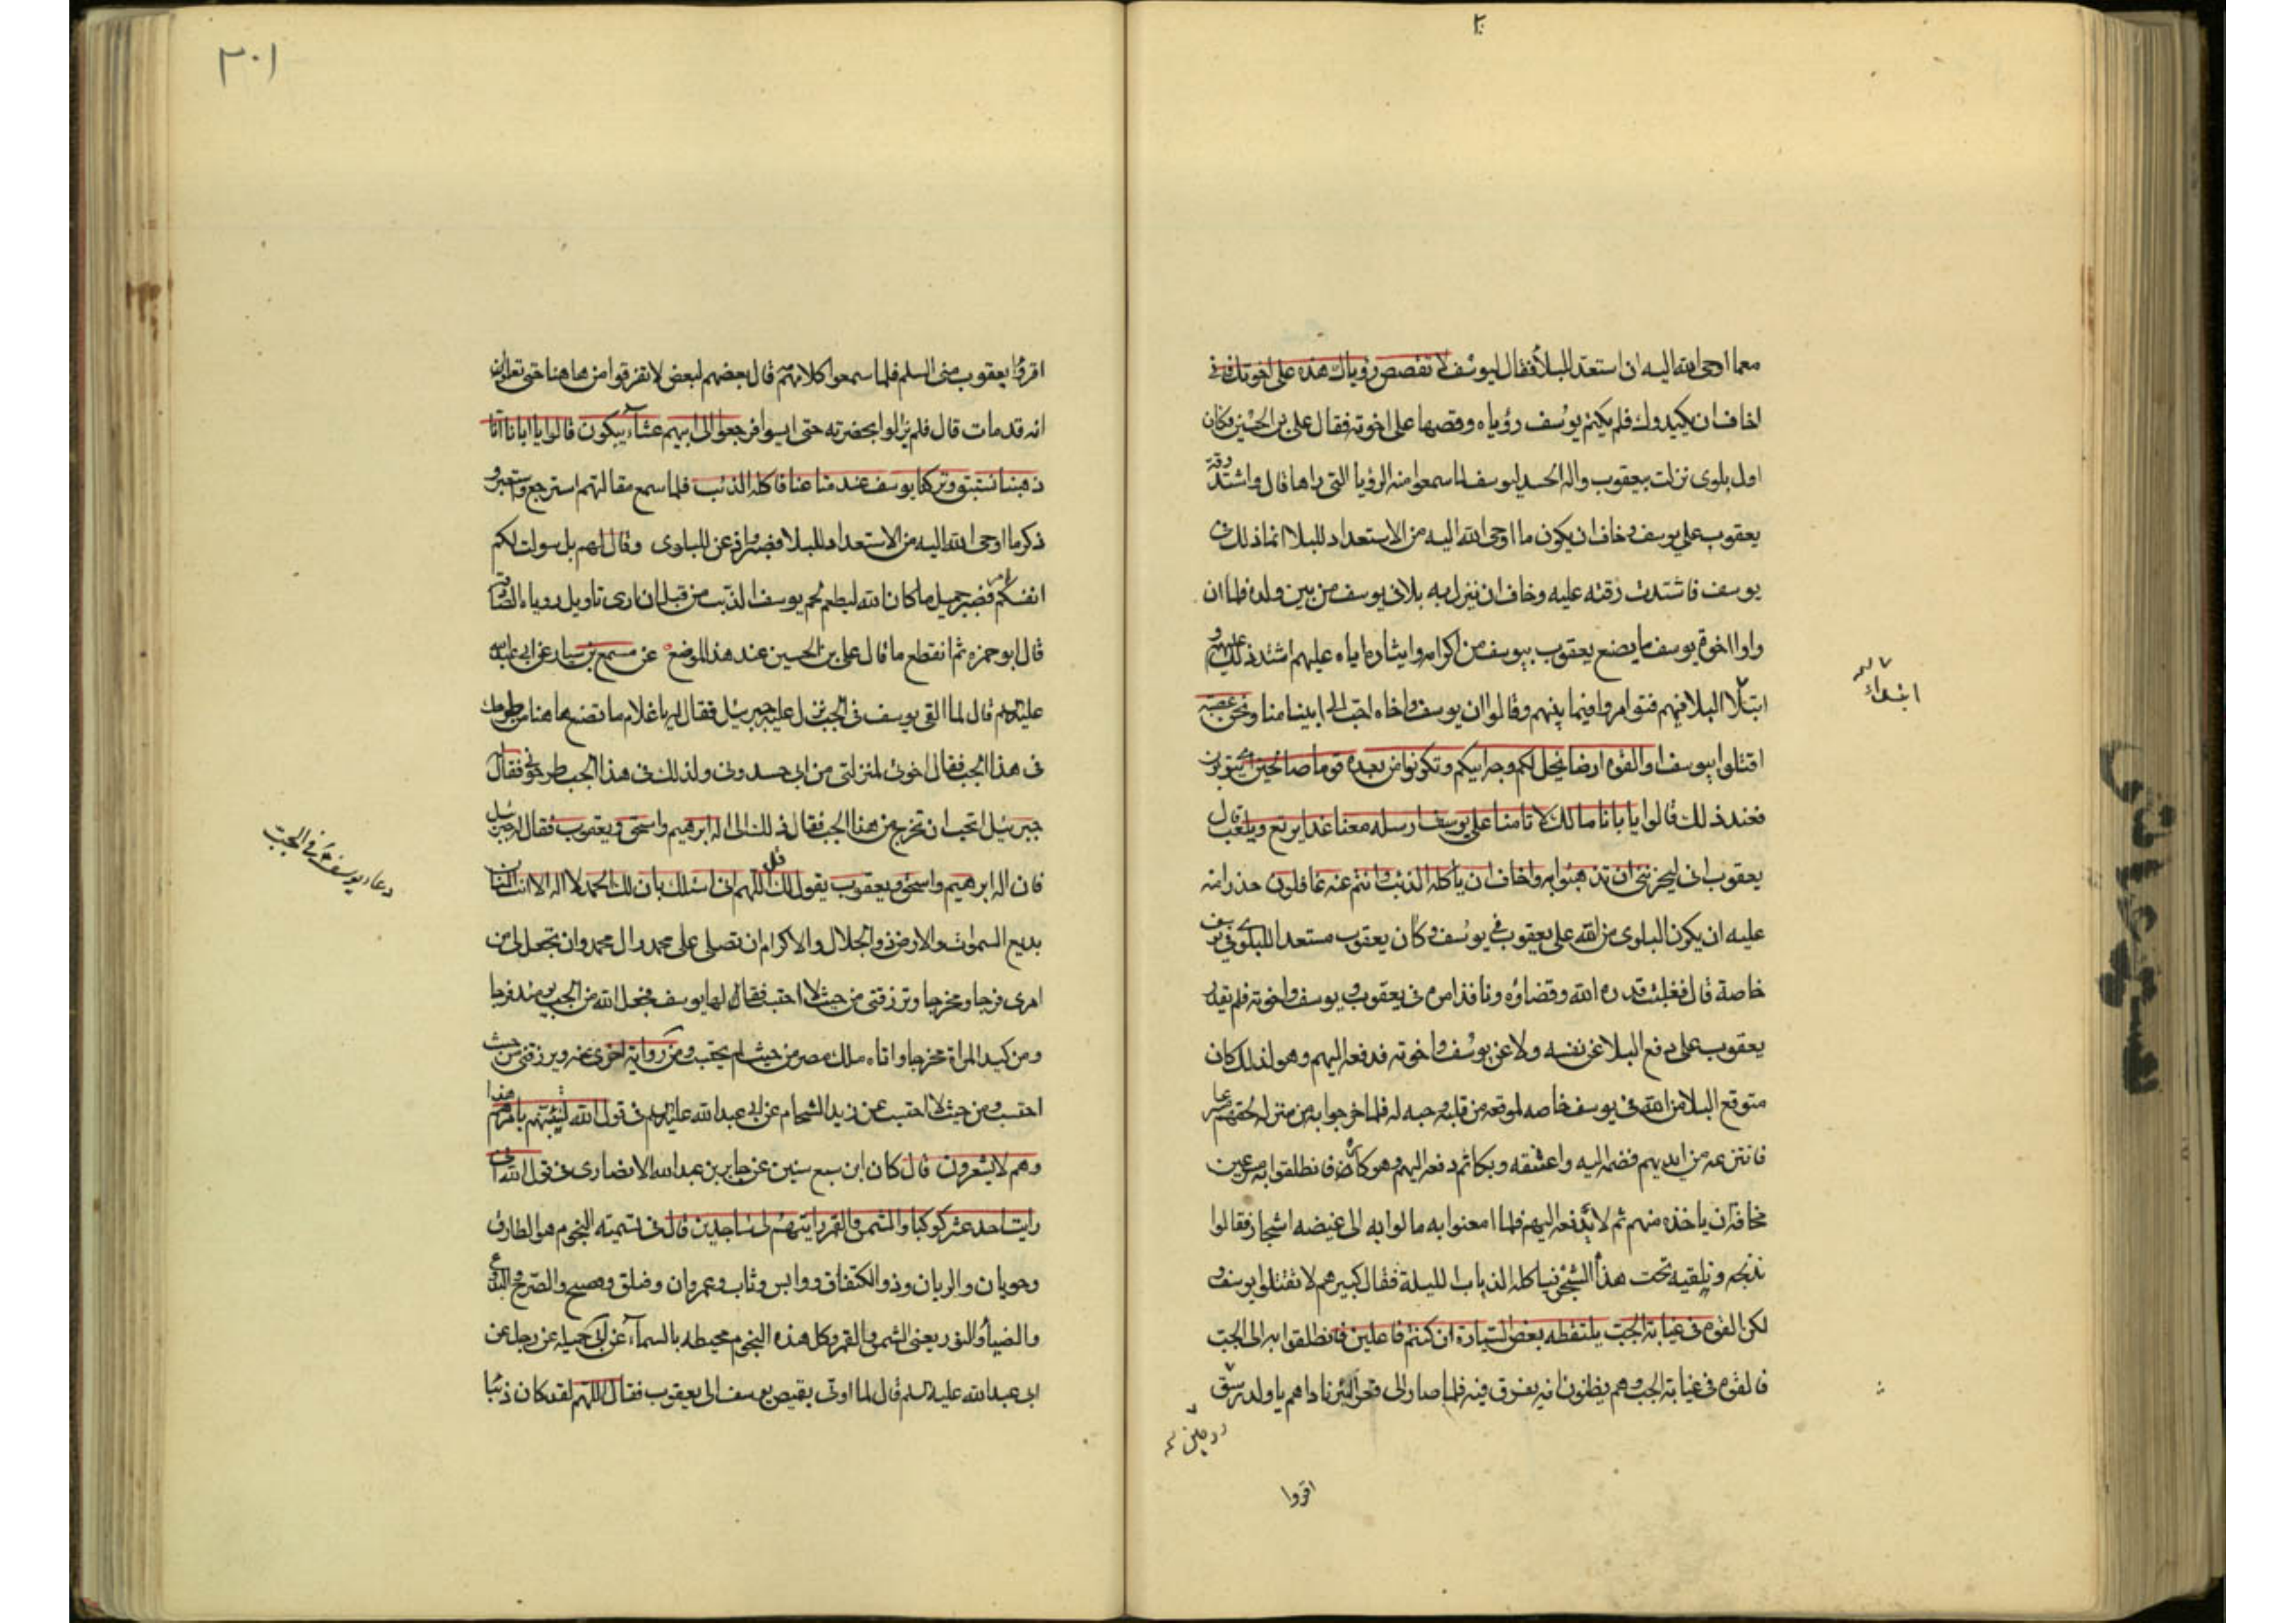 معما اوحى الله اليه ان استعد للبلاء فقال ليوسف لا تقصص رؤياك هذه على اخوتك فانى
اخاف ان يكيدوك فلم يكتم يوسف رؤياه وقصها على اخوته فقال على بن الحسين فكان
اول بلوى نزلت بيعقوب واله الحسد ليوسف لما سمعوا منه الرؤيا التى راها قال واشتد رقة
يعقوب على يوسف وخاف ان يكون ما اوحى الله اليه من الاستعداد للبلا انما ذلك فى
يوسف فاشتدت رقته عليه وخاف ان ينزل به بلا فى يوسف من بين ولده فلما ان
راوا اخوة يوسف ما يصنع يعقوب بيوسف من اكرامه وايثاره اياه عليهم اشتد ذلك عليهم و
ابتلا البلا فيهم فتوامروا فيما بينهم وقالوا ان يوسف واخاه احب الى ابينا منا ونحن عصبة
ابتداء
اقتلوا يوسف او القوه ارضا يخل لكم وجه ابيكم وتكونوا من بعده قوما صالحين اى تتوبون
فعند ذلك قالوا يا بانا مالك لا تامنا على يوسف ارسله معنا غدا يرتع ويلعب قال
يعقوب انى ليحزننى ان تذهبوا به واخاف ان ياكله الذئب وانتم عنه غافلون حذرا منه
عليه ان يكون البلوى من الله على يعقوب فى يوسف وكان يعقوب مستعدا للبلوى فى يوسف
خاصة قال فغلبت قدره الله وقضاؤه ونافذ امره فى يعقوب ويوسف واخوته فلم يقدر
يعقوب على دفع البلا عن نفسه ولا عن يوسف واخوته فدفعه اليهم وهو لذلك كان
متوقع البلا من الله فى يوسف خاصه لموقعه من قلبه وحبه له فلما خرجوا به من منزله لحقهم مسرعا
فانتزعه من ايديهم فضمه اليه واعتنقه وبكا ثم دفعه اليهم وهو كاره فانطلقوا به مسرعين
مخافة ان ياخذه منهم ثم لا يدفعه اليهم فلما امعنوا به مالوا به الى غيضه اشجار فقالوا
نذبحه ونلقيه تحت هذا الشجر فياكله الذياب الليلة فقال كبيرهم لا تقتلوا يوسف و
لكن القوه فى غيابة الجب يلتقطه بعض السيارة ان كنتم فاعلين فانطلقوا به الى الجب
فالقوه فى غيابة الجب وهم يظنون انه يغرق فيه فلما صار الى قعر البئر ناداهم يا ولد
اقروا
٣٠١
اقروا يعقوب منى السلم فلما سمعوا كلامهم قال بعضهم لبعض لا تفرقوا من هاهنا حتى تعلمون
انه قد مات قال فلم يزالوا بحضرته حتى ايسوا فرجعوا الى ابيهم عشاء يبكون قالوا يا ابانا انا
ذهبنا نستبق وتركنا يوسف عند متاعنا فاكله الذئب فلما سمع مقالتهم استرجع واستعبر و
ذكر ما اوحى الله اليه من الاستعداد للبلا فصبر واذعن للبلوى وقال لهم بل سولت لكم
انفسكم امرا فصبر جميل ما كان الله ليطعم لحم يوسف الذئب من قبل ان ارى تاويل روياه الصادقه
قال ابو حمزه ثم انقطع ما قال على بن الحسين عند هذا الموضع عن مسمع بن سيار عن ابى عبد الله
عليه السلم قال لما القى يوسف فى الجب نزل عليه جبرئيل فقال له يا غلام ما تصنع هاهنا من طرحك
فى هذا الجب فقال اخوتى لمنزلتى من ابى حسدونى ولذلك فى هذا الجب طرحونى فقال له
جبرئيل تحب ان تخرج من هذا الجب فقال ذلك الى اله ابرهيم واسحق ويعقوب فقال له جبرئيل
فان اله ابرهيم واسحق ويعقوب يقول لك قل اللهم انى اسئلك بان لك الحمد لا اله الا انت المنان
دعاء يوسف فى الجب
بديع السموات والارض ذو الجلال والاكرام ان تصلى على محمد وال محمد وان تجعل لى من
امرى فرجا ومخرجا وترزقنى من حيث لا احتسب فقال لها يوسف فجعل الله من الجب يومئذ فرجا
ومن كيد المراة مخرجا واتاه ملك مصر من حيث لم يحتسب ومن رواية اخرى عنه ويرزقنى من حيث
احتسب ومن حيث لا احتسب عن زيد الشحام عن ابى عبد الله عليه السلم فى قول الله لتنبئنهم بامرهم هذا
وهم لا يشعرون قال كان ابن سبع سنين عن جابر بن عبد الله الانصارى فى قول الله انى
رايت احد عشر كوكبا والشمس والقمر رايتهم لى ساجدين قال فى تسميته النجوم هو الطارق
وحوبان والريان وذو الكتفان ووابس وثاب وعمروان وفيلق ومصبح والصرح و
والضياء والنور يعنى الشمس والقمر وكل هذه النجوم محيطه بالسماء عن ابى جميله عن رجل عن
ابى عبد الله عليه السلم قال لما اوتى بقميص يوسف الى يعقوب فقال اللهم لقد كان ذئبا